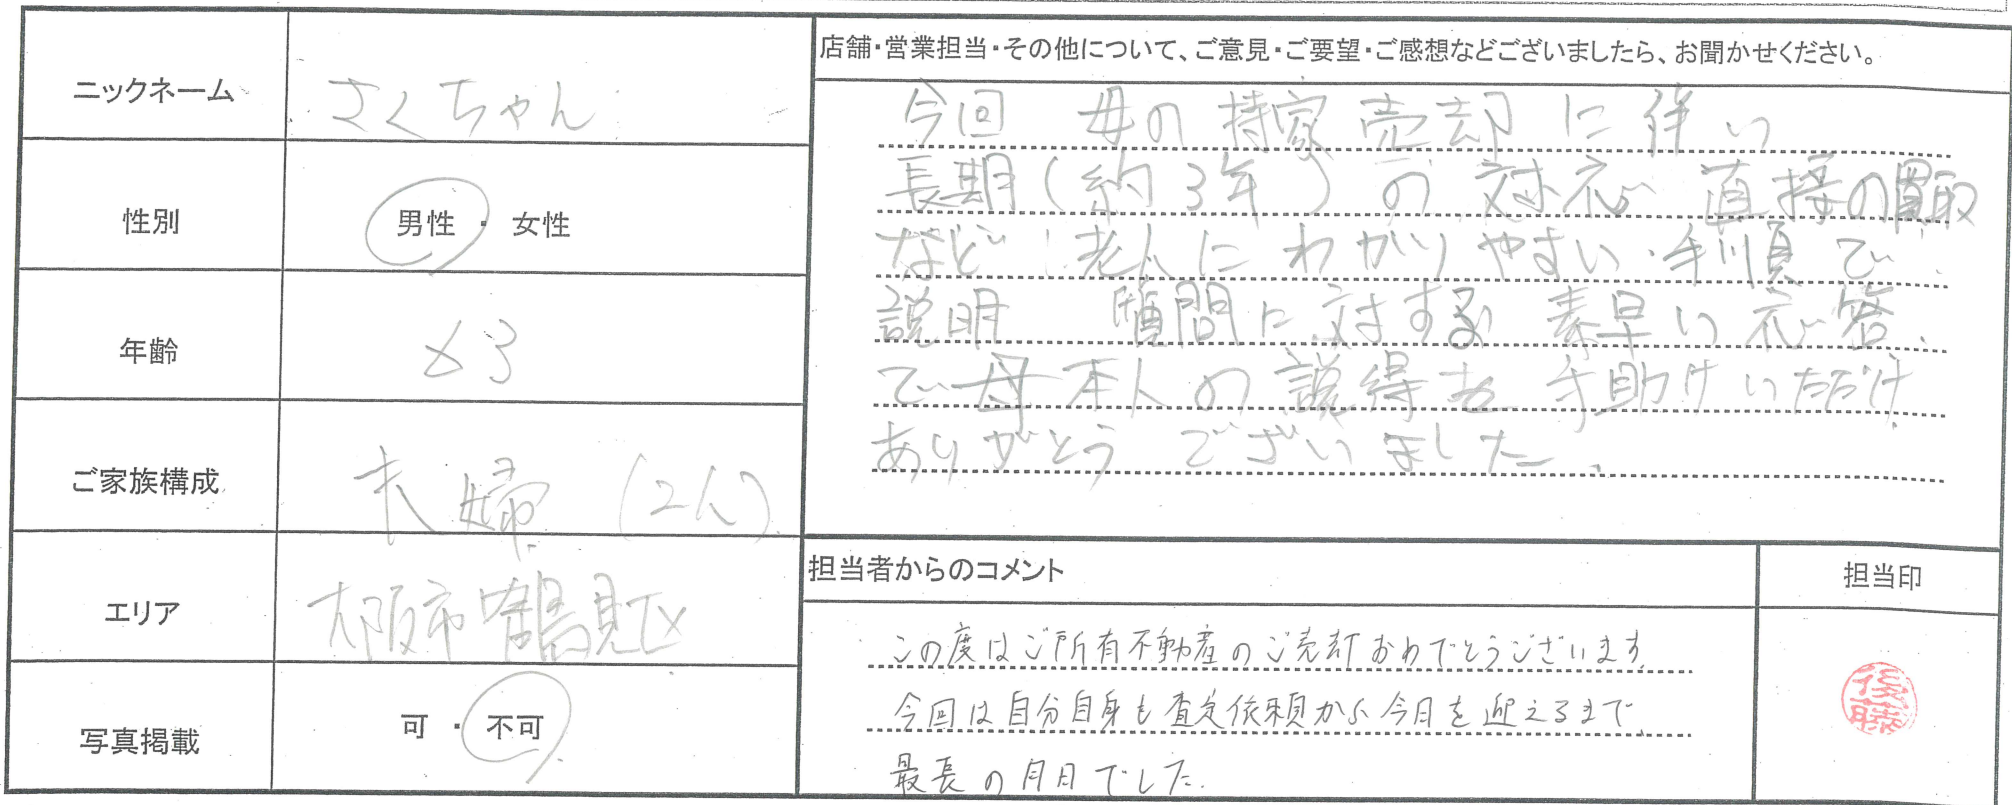 ニックネーム
さくちゃん
性別
男性・女性
年齢
63
ご家族構成
夫婦(2人)
エリア
大阪市鶴見区
写真掲載
可・不可
店舗・営業担当・その他について、ご意見・ご要望・ご感想などございましたら、お聞かせください。
今回 母の持家売却に伴い
長期(約3年)の対応 直接の買取
など 老人にわかりやすい手順で
説明 質問に対する素早い応答
で母本人の説得も手助けいただけ
ありがとうございました。
担当者からのコメント
この度はご所有不動産のご売却おめでとうございます。
今回は自分自身も査定依頼から今日を迎えるまで
最長の月日でした。
担当印
後藤